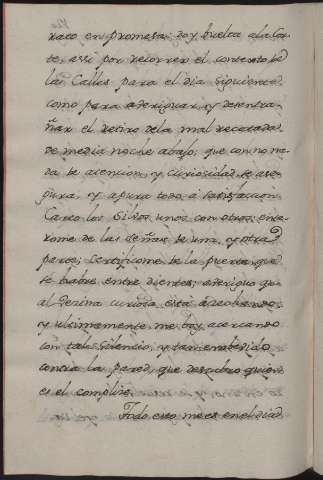 rato en promesa: doy buelta a la Cor
te, assi por recorrer el contexto de
las Calles para el dia siguiente
como para averiguar, y desentra
ñar el retiro de la mal recatada
de media noche abajo; que con no me
da be atencion, y curiosidad, se ase
gura, y apura todo à satisfaccion.
los Silvos unos con otros; ente
rome de las señas de una, y otra
parte; Certificome de la puerta que
se habre entre dientes; averiguo que
al vecina curiosa està acechando;
y ultimamente me boy acercando
con tal Silencio, y tan embebido
contra la pared, que descubro quien
es el complize.
Todo esto me es en el dia d